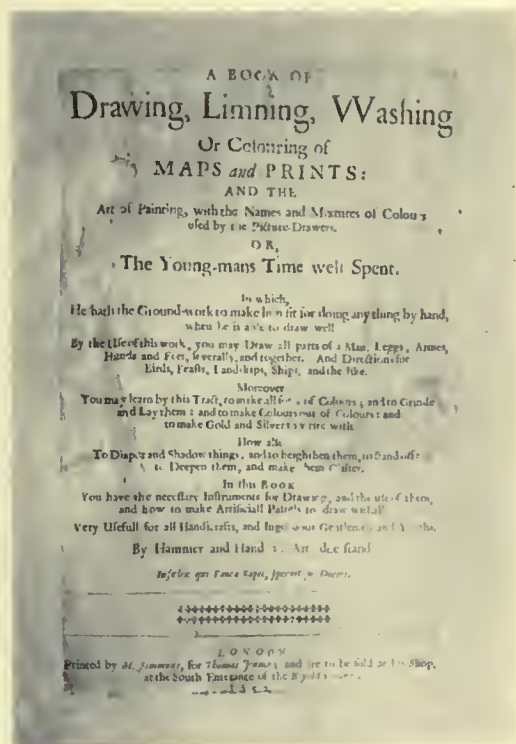 A BOOK OF
Drawing, Limning, Washing
Or Colouring of
MAPS and PRINTS:
AND THE
Art of Painting, with the Names and Mixtures of Colours
used by the Picture-Drawers.
OR,
The Young-mans Time well Spent.
In which,
He hath the Ground-work to make him fit for doing any thing by hand,
when he is able to draw well
By the Use of this work, you may Draw all parts of a Man, Leggs, Armes,
Hands and Feet, severally, and together. And Directions for
Birds, Beasts, Landskips, Ships, and the like.
Moreover
You may learn by this Tract, to make all of Colours; and to Grinde
and Lay them: and to make Colours out of Colours: and
to make Gold and Silver to write with.
How also
To Diaper and Shadow things, and to heighthen them, to stand off:
to Deepen them, and make them Glister.
In this BOOK
You have the necessary Instruments for Drawing, and the use of them,
and how to make Artificiall Pastels to draw withall
Very Usefull for all Handicrafts, and Ingenious Gentlemen and
By Hammer and Hand Arts doe stand
LONDON
Printed by M. Simmons, for Thomas Jenner; and are to be sold at his Shop,
at the South Entrance of the